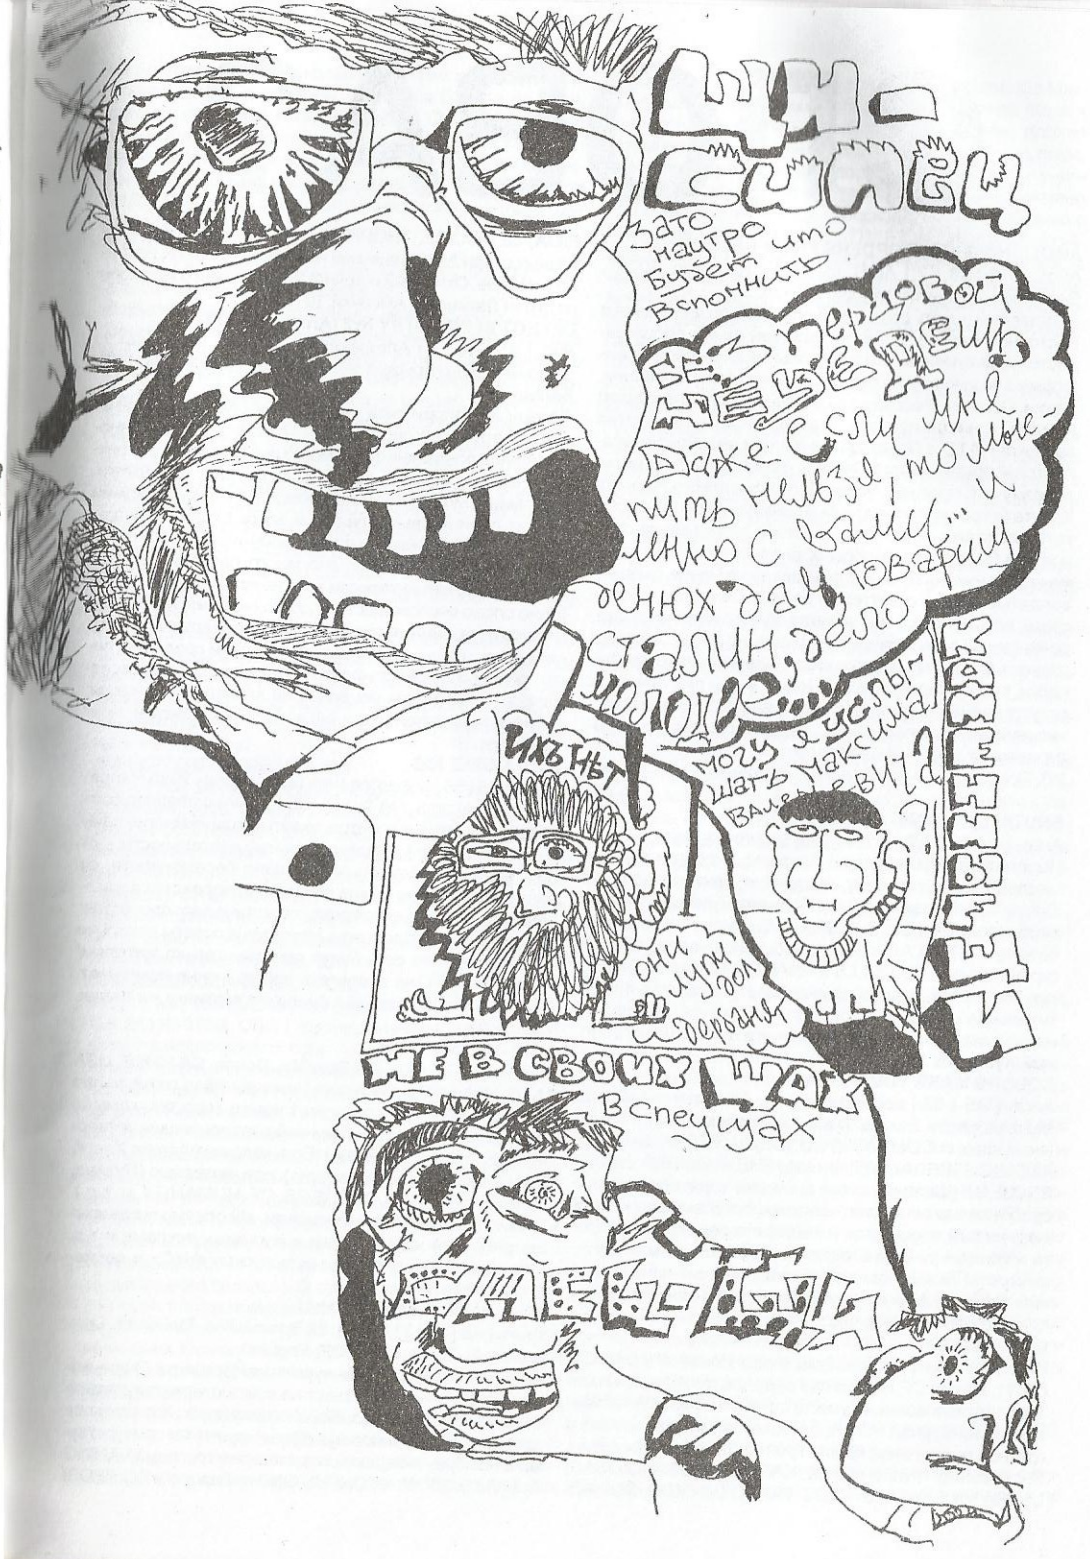 ЩИ-
СИПЕЦ
Зато
наутро
будет что
вспомнить
БЕЗ перцовой
НЕЦЕДЕЩЬ
Даже если мне
пить нельзя, то мыс-
ленно с вами... и
денюх дам, товарищ
Сталин, дело
молодое...
ИХЪ НѢТ
могу я услы-
шать Максима
Валерьевича?
?
они
лупи
дол
и дербанят
КОЖЕННЫЕТЦЫ
НЕ В СВОИХ ЩАХ
В спецущах
СПЕЦ-ЩИ